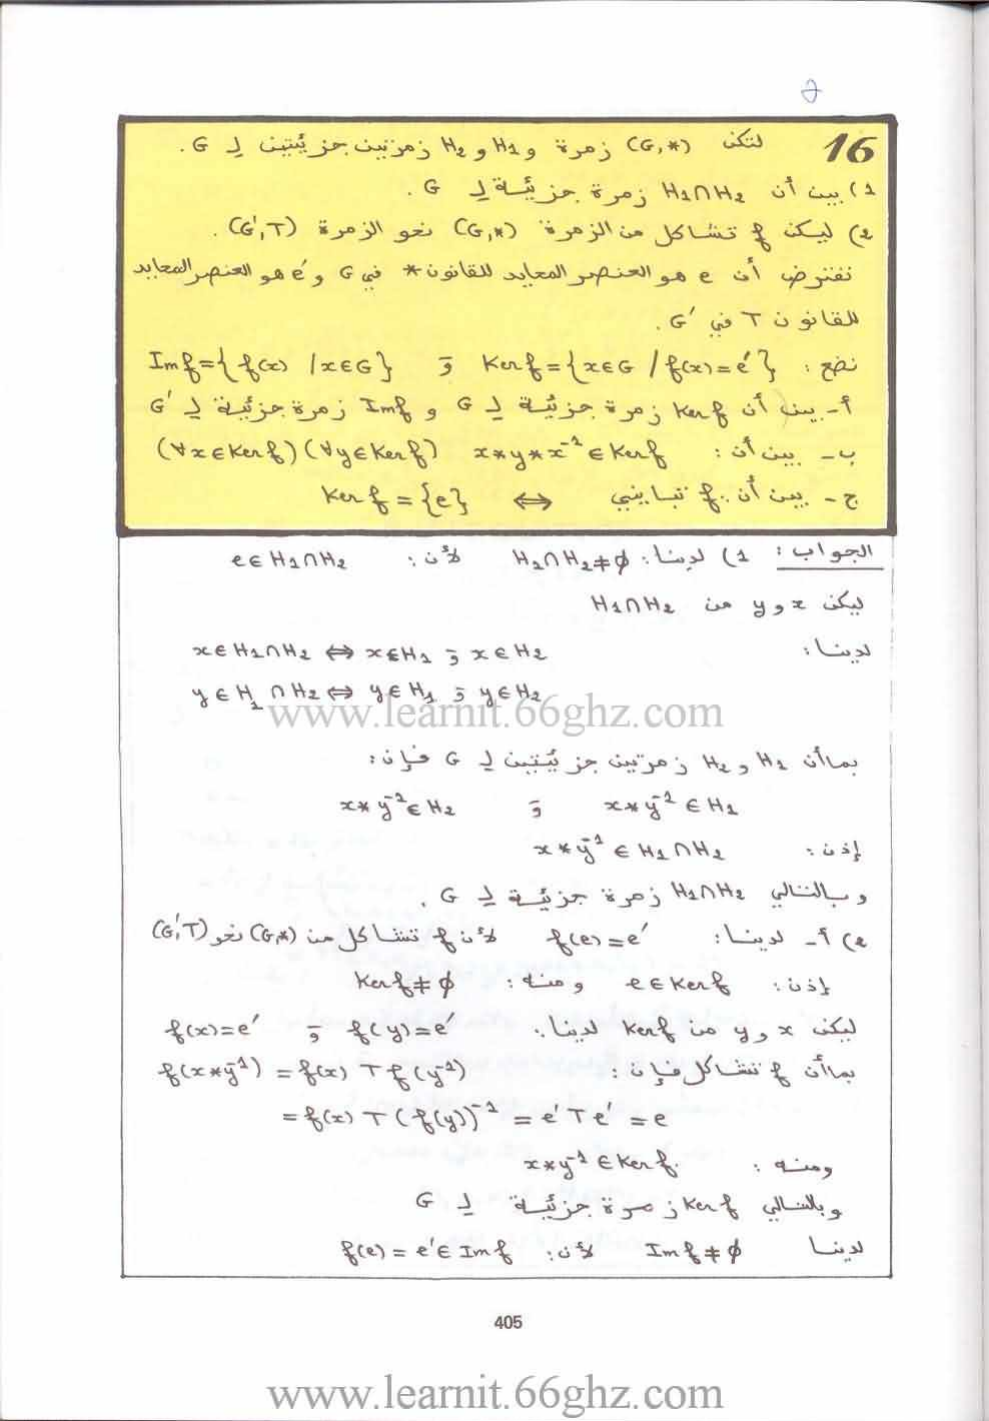 16 لتكن (G,*) زمرة و H₁ و H₂ زمرتين جزئيتين لـ G .
1) بين أن H₁∩H₂ زمرة جزئية لـ G .
2) ليكن f تشاكل من الزمرة (G,*) نحو الزمرة (G',T) .
نفترض أن e هو العنصر المحايد للقانون * في G و e' هو العنصر المحايد
للقانون T في G' .
نضع : Ker f = {x∈G / f(x)=e'} و Im f = {f(x) / x∈G}
أ- بين أن Ker f زمرة جزئية لـ G و Im f زمرة جزئية لـ G'
ب- بين أن : (∀x∈Ker f)(∀y∈Ker f) x*y*x⁻¹ ∈ Ker f
ج- بين أن : f تبايني ⇔ Ker f = {e}
الجواب : 1) لدينا : H₁∩H₂≠∅ لأن : e∈H₁∩H₂
ليكن x و y من H₁∩H₂
لدينا : x∈H₁∩H₂ ⇔ x∈H₁ و x∈H₂
y∈H₁∩H₂ ⇔ y∈H₁ و y∈H₂
www.learnit.66ghz.com
بما أن H₁ و H₂ زمرتين جزئيتين لـ G فإن :
x*y⁻¹∈H₁ و x*y⁻¹∈H₂
إذن : x*y⁻¹ ∈ H₁∩H₂
وبالتالي H₁∩H₂ زمرة جزئية لـ G .
2) أ- لدينا : f(e)=e' لأن f تشاكل من (G,*) نحو (G',T)
إذن : e∈Ker f ومنه : Ker f≠∅
ليكن x و y من Ker f لدينا : f(y)=e' و f(x)=e'
بما أن f تشاكل فإن : f(x*y⁻¹) = f(x) T f(y⁻¹)
= f(x) T (f(y))⁻¹ = e' T e' = e
ومنه : x*y⁻¹ ∈ Ker f
وبالتالي Ker f زمرة جزئية لـ G
لدينا Im f≠∅ لأن : f(e) = e'∈ Im f
405
www.learnit.66ghz.com